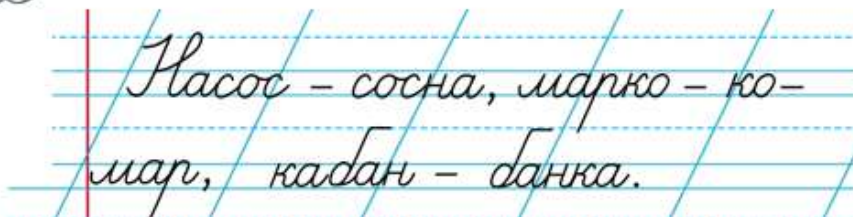 Насос – сосна, марко – ко-
мар, кабан – банка.